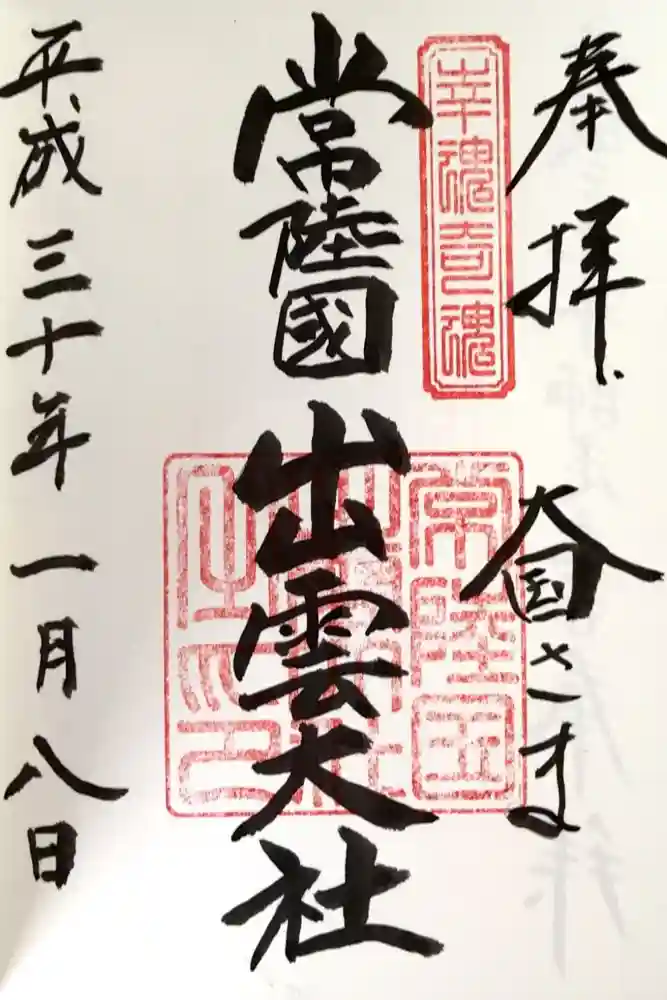 奉拝
大国さま
幸魂奇魂
常陸國出雲大社
常陸国
平成三十年一月八日